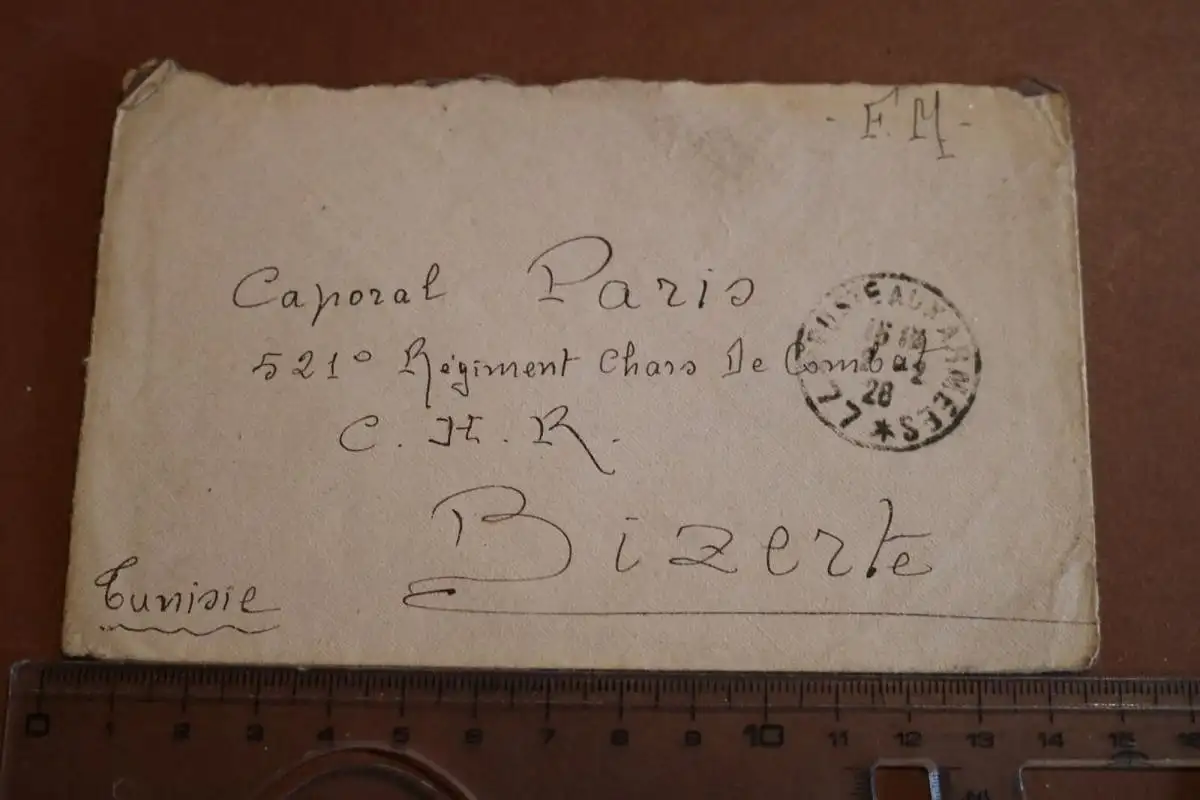 - F.M -
Caporal Paris
521º Régiment Chars De Combat
C. H. R.
Bizerte
Tunisie
POSTE AUX ARMEES ★ 77
28
0 1 2 3 4 5 6 7 8 9 10 11 12 13 14 15 16